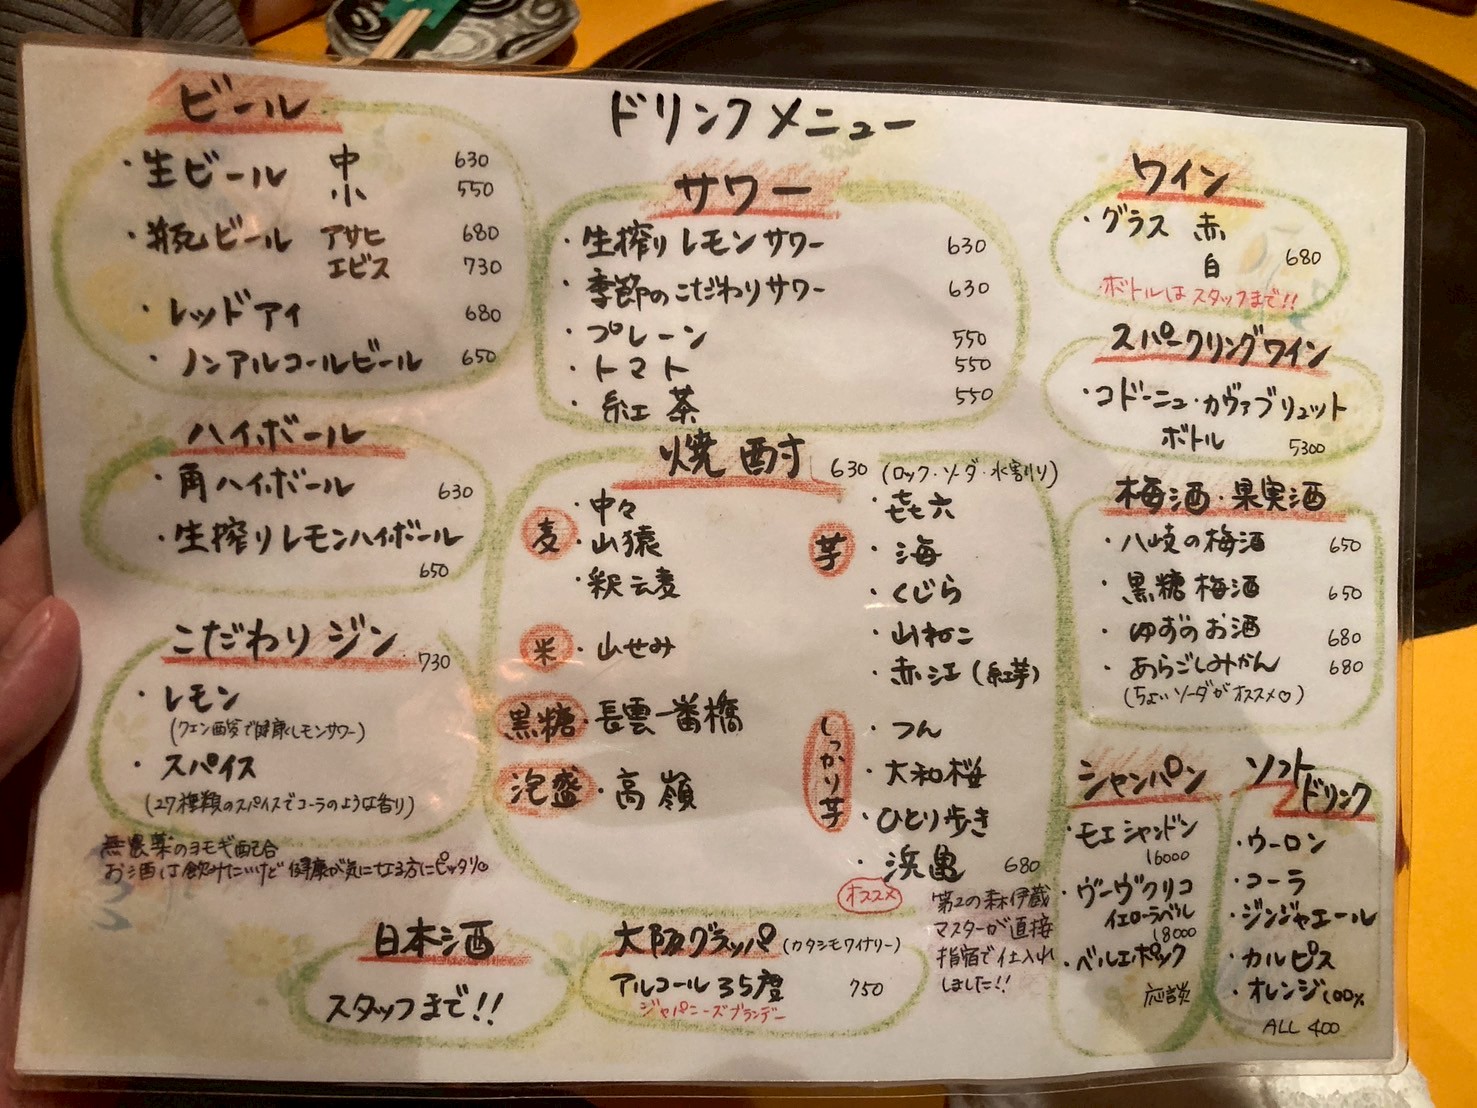 ドリンクメニュー
ビール
・生ビール 中 630
小 550
・瓶ビール アサヒ 680
エビス 730
・レッドアイ 680
・ノンアルコールビール 650
ハイボール
・角ハイボール 630
・生搾りレモンハイボール
650
こだわりジン 730
・レモン
(クエン酸で健康レモンサワー)
・スパイス
(27種類のスパイスでコーラのような香り)
無農薬のヨモギ配合
お酒は飲みたいけど健康が気になる方にピッタリ
日本酒
スタッフまで!!
サワー
・生搾りレモンサワー 630
・季節のこだわりサワー 630
・プレーン 550
・トマト 550
・紅茶 550
焼酎 630 (ロック・ソーダ・水割り)
麦
・中々
・山猿
・釈云麦
米
・山せみ
黒糖・長雲一番橋
泡盛・高嶺
芋
・㐂六
・海
・くじら
・山ねこ
・赤江(紅芋)
しっかり芋
・つん
・大和桜
・ひとり歩き
・浜亀 680
オススメ
第2の森伊蔵
マスターが直接
指宿で仕入れ
しました!!
大阪グラッパ(カタシモワイナリー)
アルコール35度 750
ジャパニーズブランデー
ワイン
・グラス 赤
白 680
ボトルはスタッフまで!!
スパークリングワイン
・コドーニュ・カヴァブリュット
ボトル 5300
梅酒・果実酒
・八岐の梅酒 650
・黒糖梅酒 650
・ゆずのお酒 680
・あらごしみかん 680
(ちょいソーダがオススメ♡)
シャンパン
・モエシャンドン
16000
・ヴーヴクリコ
イエローラベル
18000
・ベルエポック
応談
ソフトドリンク
・ウーロン
・コーラ
・ジンジャエール
・カルピス
・オレンジ100%
ALL 400